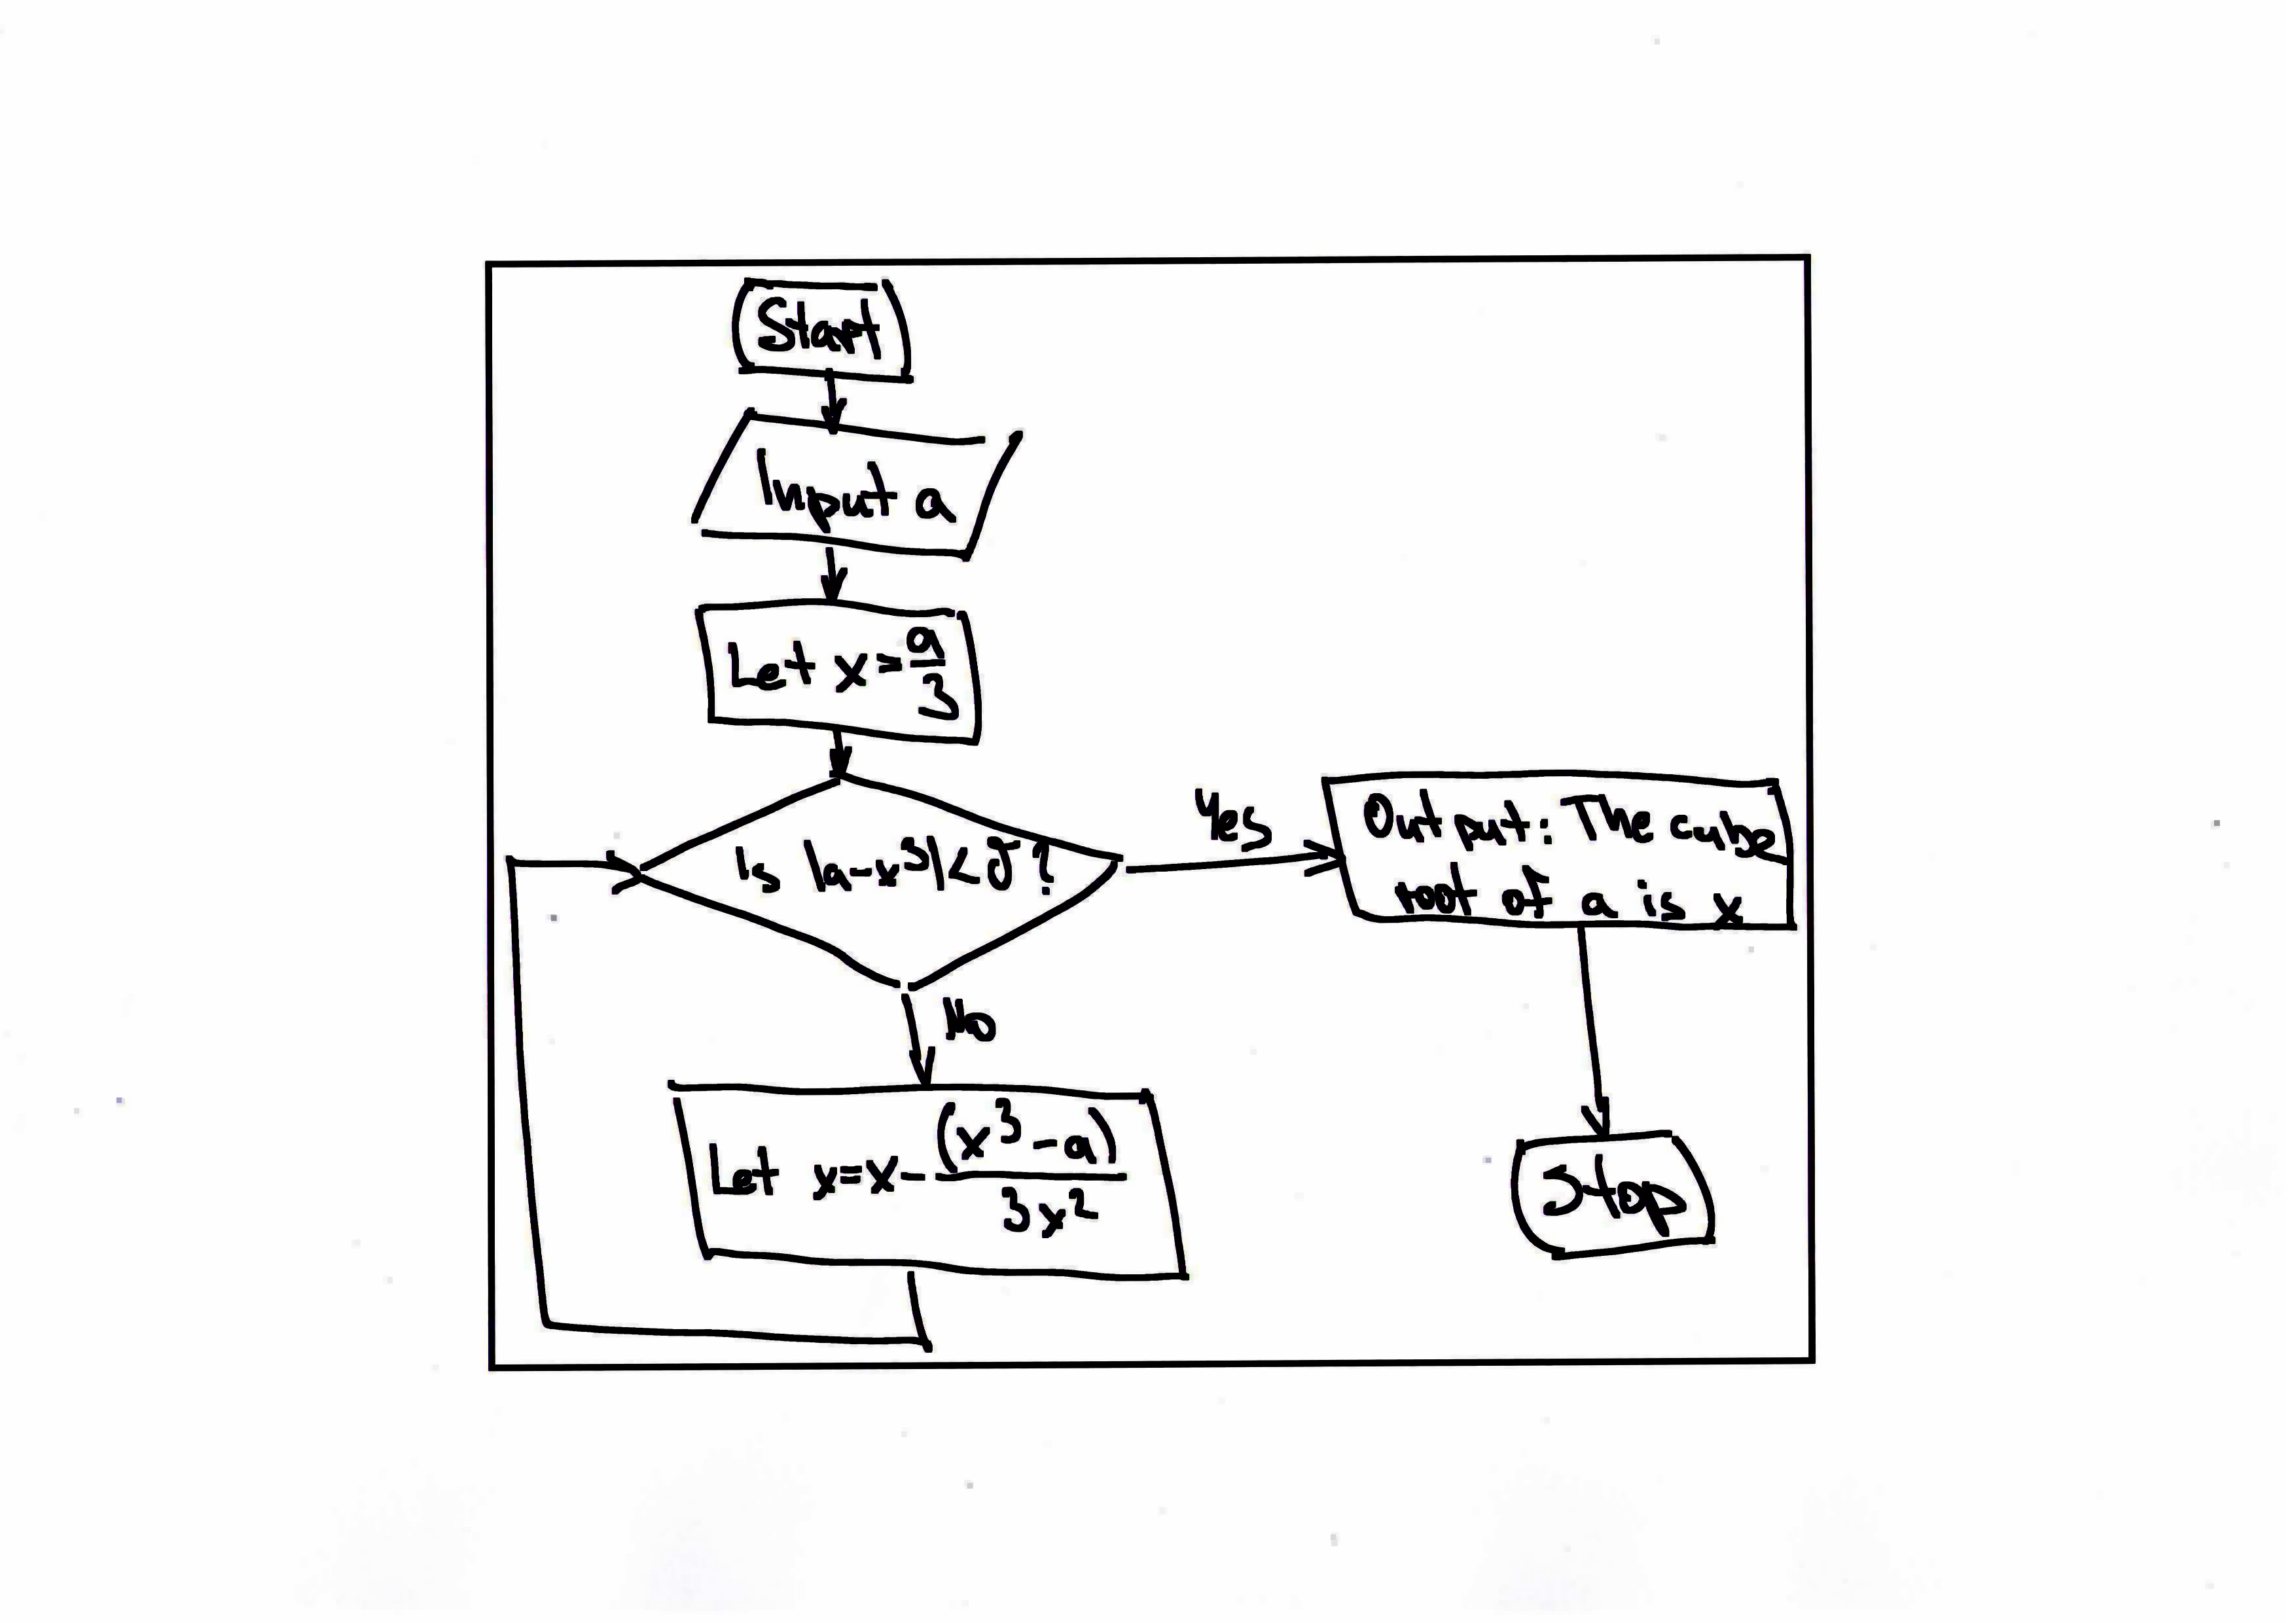 Start
Input a
Let x = a/3
Is |a-x³|< δ ?
Yes
Output: The cube
root of a is x
No
Let x=x-(x³-a)/3x²
Stop